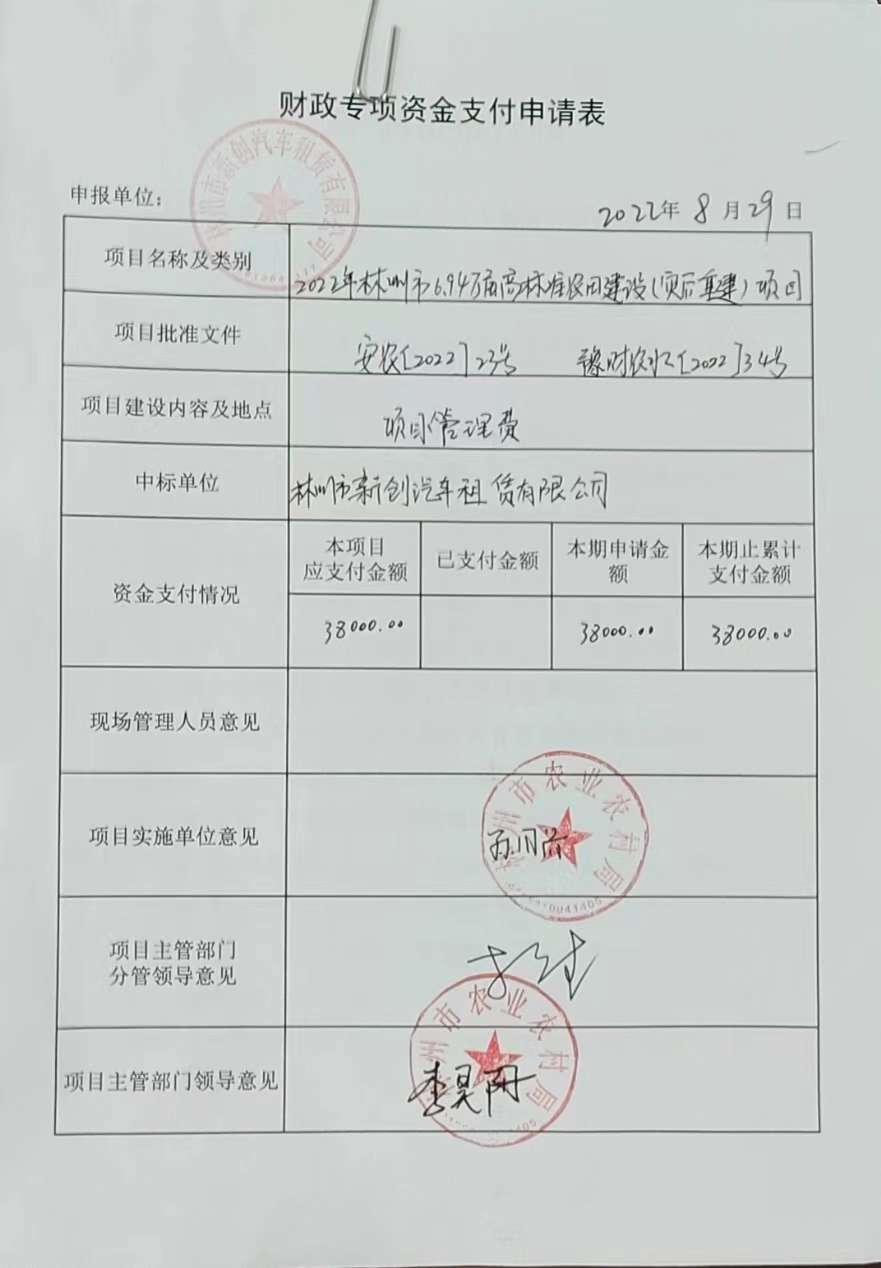 财政专项资金支付申请表
林州市新创汽车租赁有限公司
申报单位：
2022年 8 月 29 日
项目名称及类别
2022年林州市6.94万亩高标准农田建设(灾后重建)项目
项目批准文件
安农[2022]23号 豫财农水[2022]34号
项目建设内容及地点
项目管理费
中标单位
林州市新创汽车租赁有限公司
资金支付情况
本项目
应支付金额
已支付金额
本期申请金
额
本期止累计
支付金额
38000.00
38000.00
38000.00
现场管理人员意见
项目实施单位意见
林州市农业农村局
项目主管部门
分管领导意见
项目主管部门领导意见
林州市农业农村局